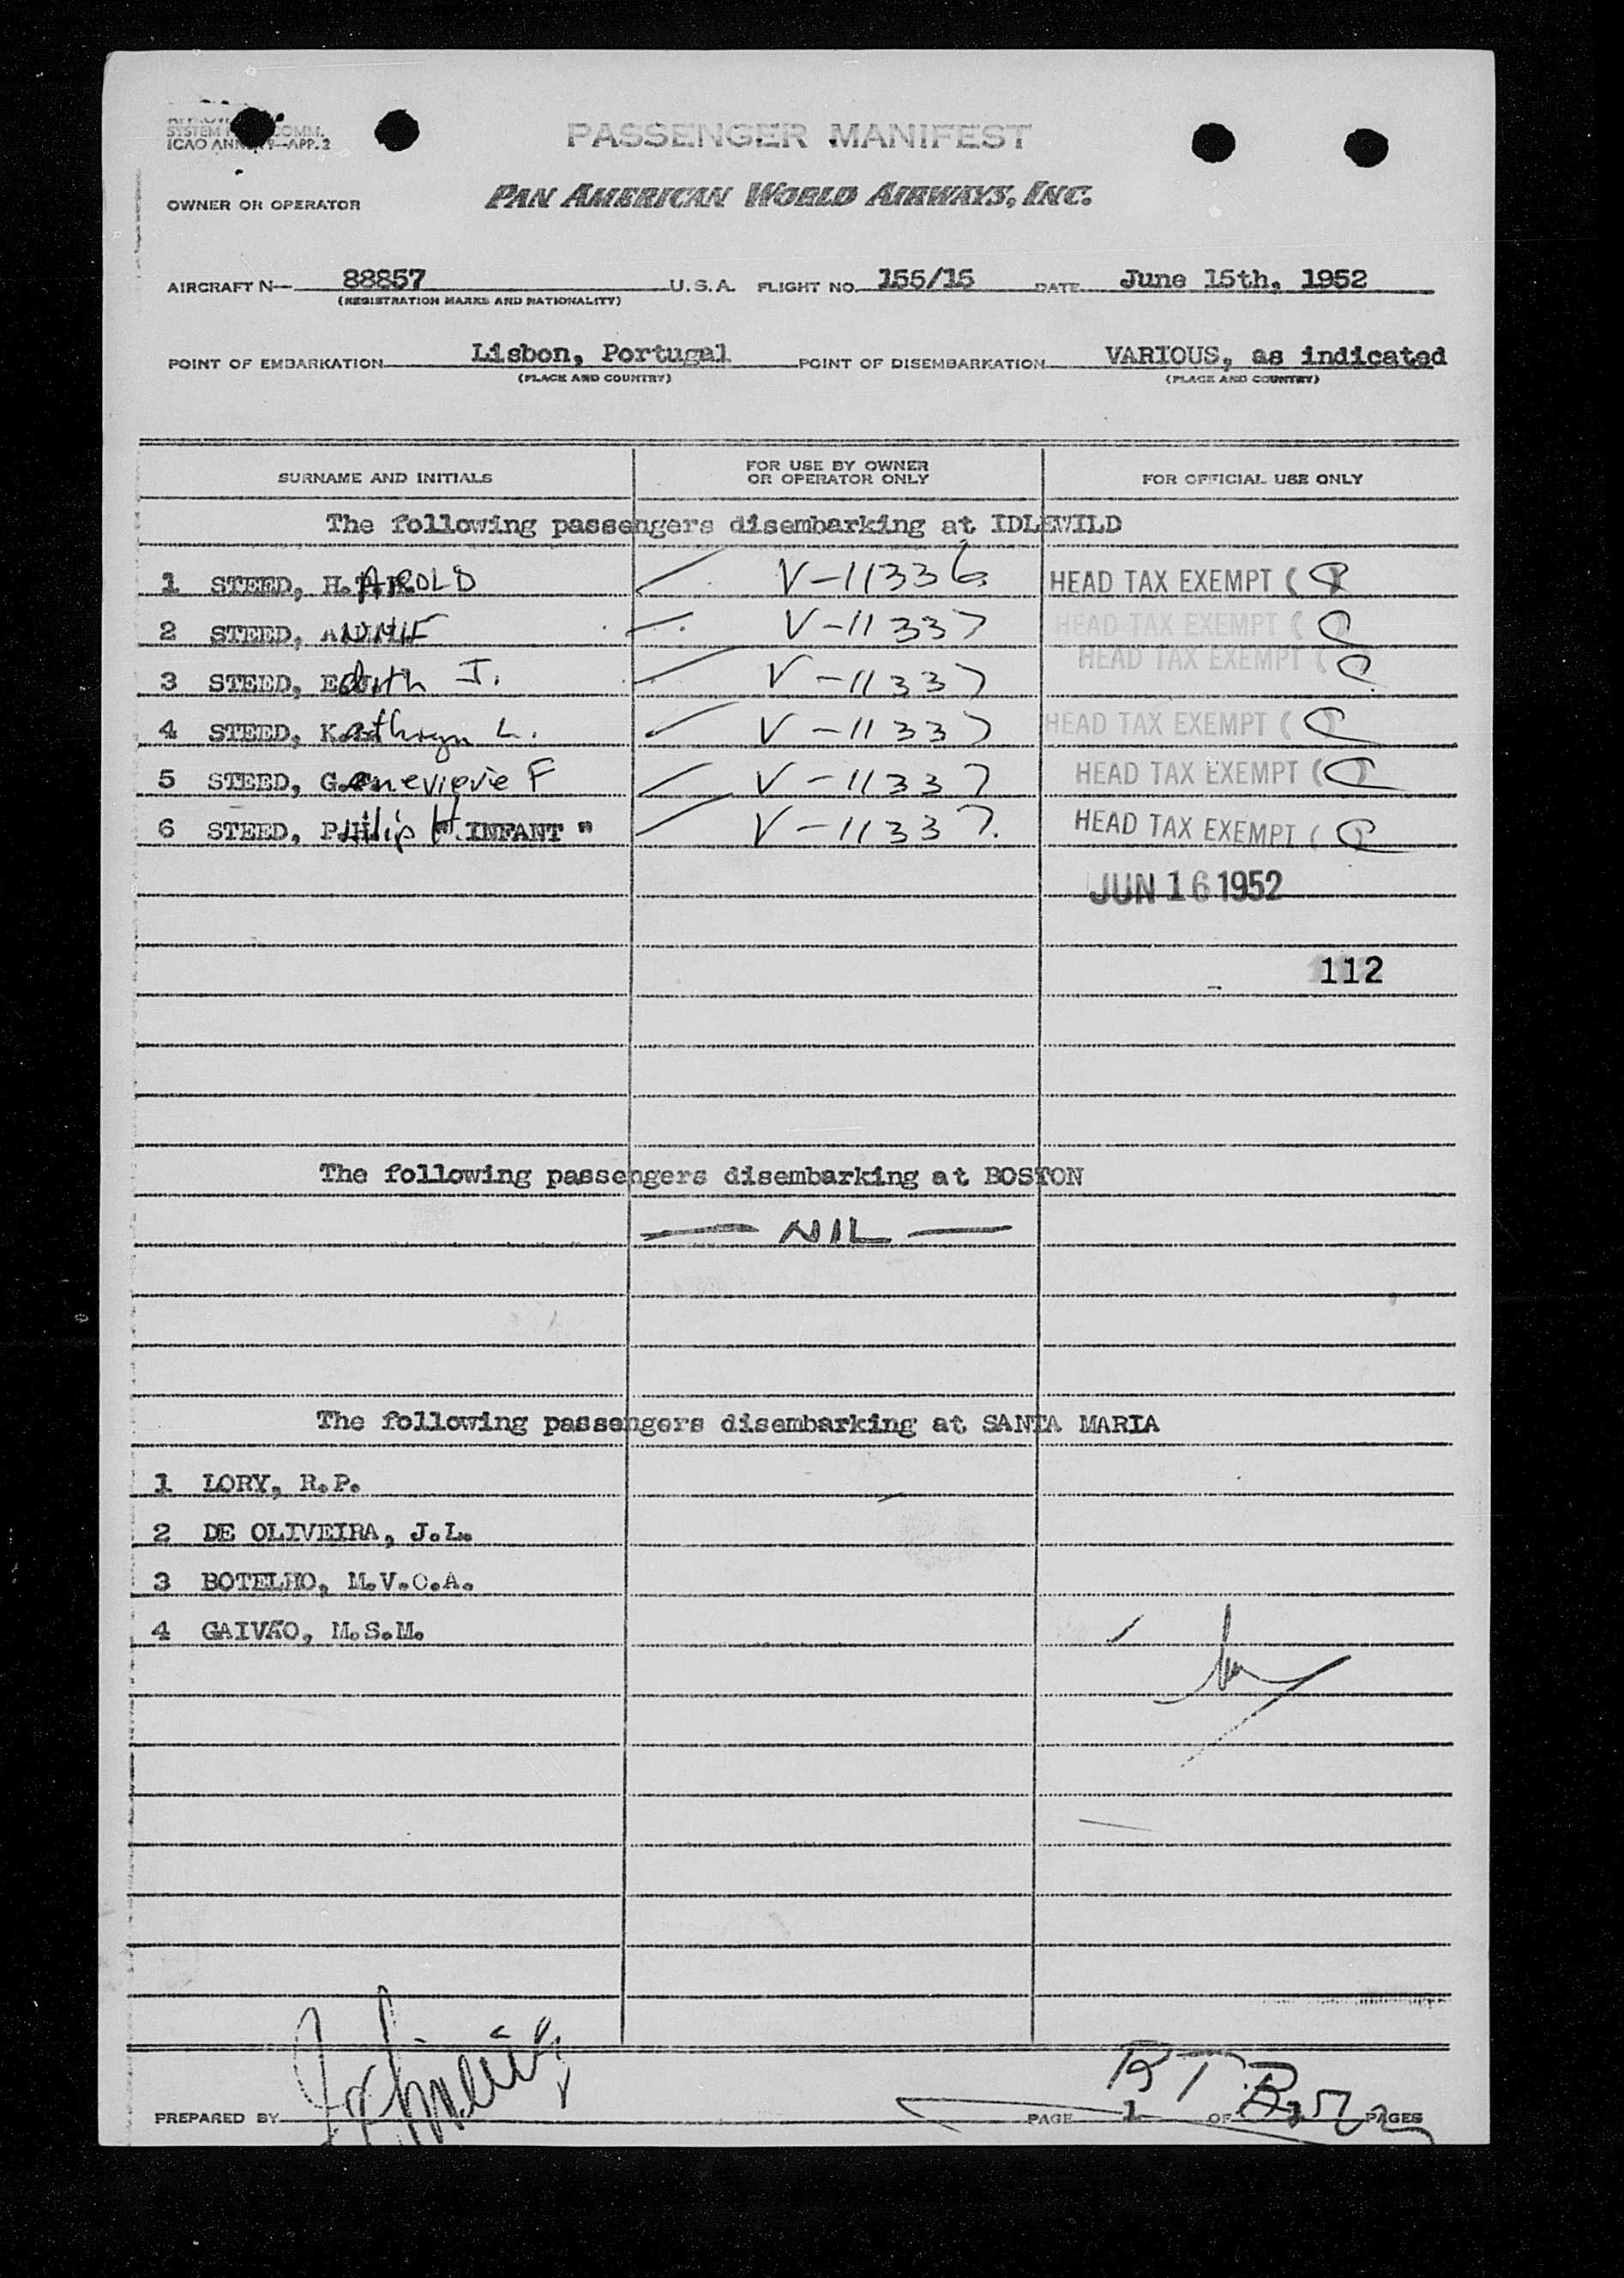 SYSTEM COMM.
ICAO ANNEX 9—APP. 2
PASSENGER MANIFEST
OWNER OR OPERATOR PAN AMERICAN WORLD AIRWAYS, INC.
AIRCRAFT N— 88857 U.S.A. FLIGHT NO. 155/15 DATE June 15th, 1952
(REGISTRATION MARKS AND NATIONALITY)
POINT OF EMBARKATION Lisbon, Portugal POINT OF DISEMBARKATION VARIOUS, as indicated
(PLACE AND COUNTRY) (PLACE AND COUNTRY)
SURNAME AND INITIALS FOR USE BY OWNER OR OPERATOR ONLY FOR OFFICIAL USE ONLY
The following passengers disembarking at IDLEWILD
1 STEED, HAROLD V-11336 HEAD TAX EXEMPT ( )
2 STEED, ANNIE V-11337 HEAD TAX EXEMPT ( )
3 STEED, Edith J. V-11337 HEAD TAX EXEMPT ( )
4 STEED, Kathryn L. V-11337 HEAD TAX EXEMPT ( )
5 STEED, Genevieve F V-11337 HEAD TAX EXEMPT ( )
6 STEED, Philip H. "INFANT" V-11337. HEAD TAX EXEMPT ( )
JUN 16 1952
112
The following passengers disembarking at BOSTON
— NIL —
The following passengers disembarking at SANTA MARIA
1 LORY, R.P.
2 DE OLIVEIRA, J.L.
3 BOTELHO, M.V.C.A.
4 GAIVÃO, M.S.M.
PREPARED BY PAGE 1 OF PAGES